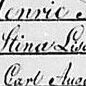 Henric
Stina Lis
Carl Aug